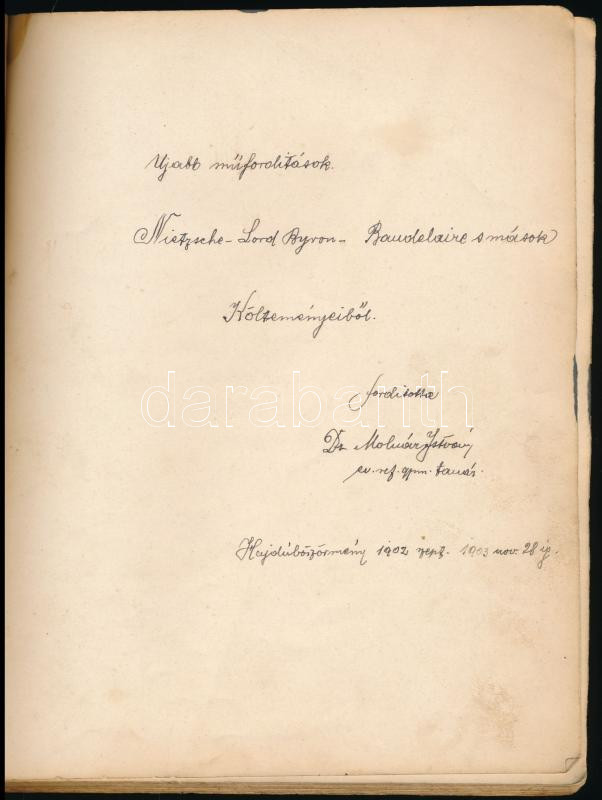 Ujabb műforditások.
Nietzsche – Lord Byron – Baudelaire s mások
Költeményeiből.
darabanth
forditotta
Dr. Molnár István
ev. ref. gym. tanár.
Hajdúböszörmény 1902 sept. 1903 nov. 28 ig.